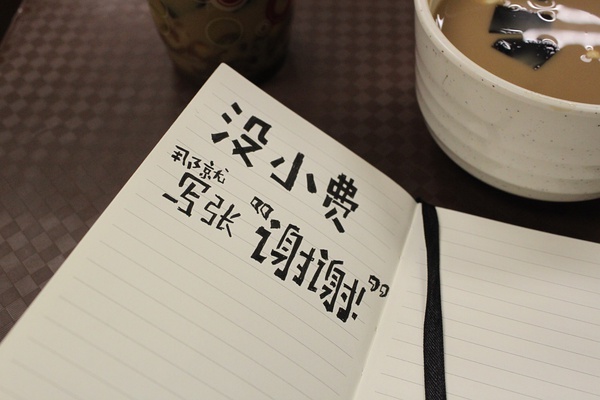 没小费
那就
写张“谢谢”